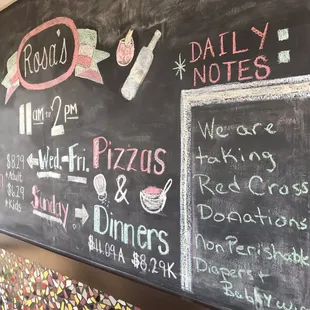 Rosa's
11am to 2pm
$8.29
+ Adult
$6.29
+ Kids
Wed.-Fri.
Sunday
Pizzas
&
Dinners
$11.69 A
$8.29K
DAILY
NOTES
We are
taking
Red Cross
Donations
non Perishable
Diapers +
Baby